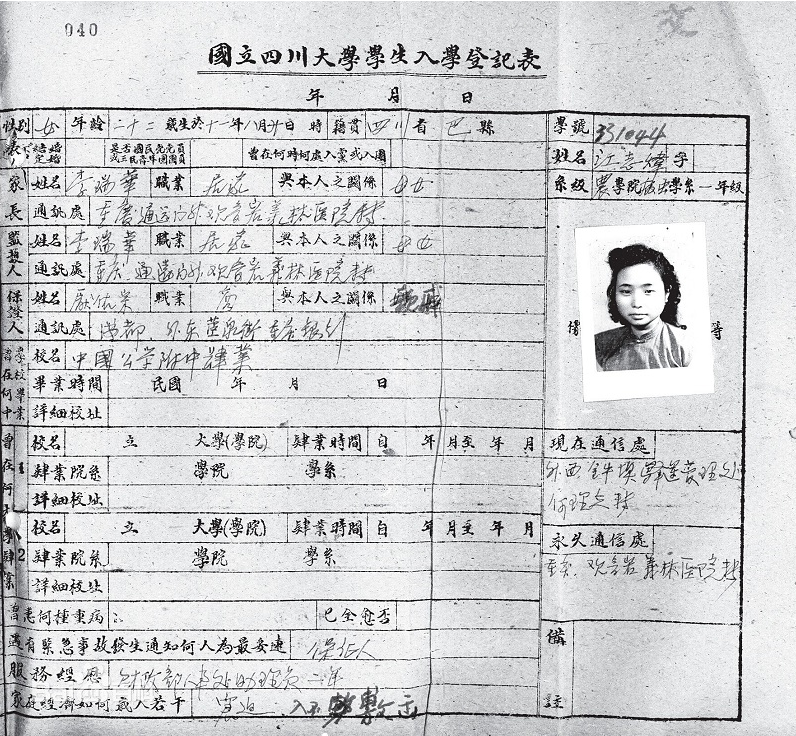 040
國立四川大學學生入學登記表
年 月 日
性別 女 年齡 二十二 歲生於十一年八月廿日 時 籍貫 四川省 巴縣 學號 331044
是否國民党党員或三民主義青年團團員 曾在何時何處入黨或入團 姓名 江志煒 字
家長 姓名 李瑞華 職業 與本人之關係 母女 系級 農學院 學系一年級
通訊處 重慶通远门外观音岩義林医院转
監護人 姓名 李瑞華 職業 與本人之關係 母女
通訊處 重庆通远门外观音岩義林医院转
保證人 姓名 職業 與本人之關係
通訊處 成都 外东
曾在何中學校畢業 校名 中國公学附中肄業
畢業時間 民國 年 月 日
詳細校址
曾在何大學肄業 1 校名 立 大學(學院) 肄業時間 自 年 月至 年 月
肄業院系 學院 學系
詳細校址
2 校名 立 大學(學院) 肄業時間 自 年 月至 年 月
肄業院系 學院 學系
詳細校址
曾患何種重病 已全愈否
遇有緊急事故發生通知何人為最妥速 保证人
服務經歷 财政部人事处助理员二年
家庭經濟如何歲入若干 窘迫 入不敷
相 等
現在通信處
外西
永久通信處
重庆观音岩義林医院转
備註